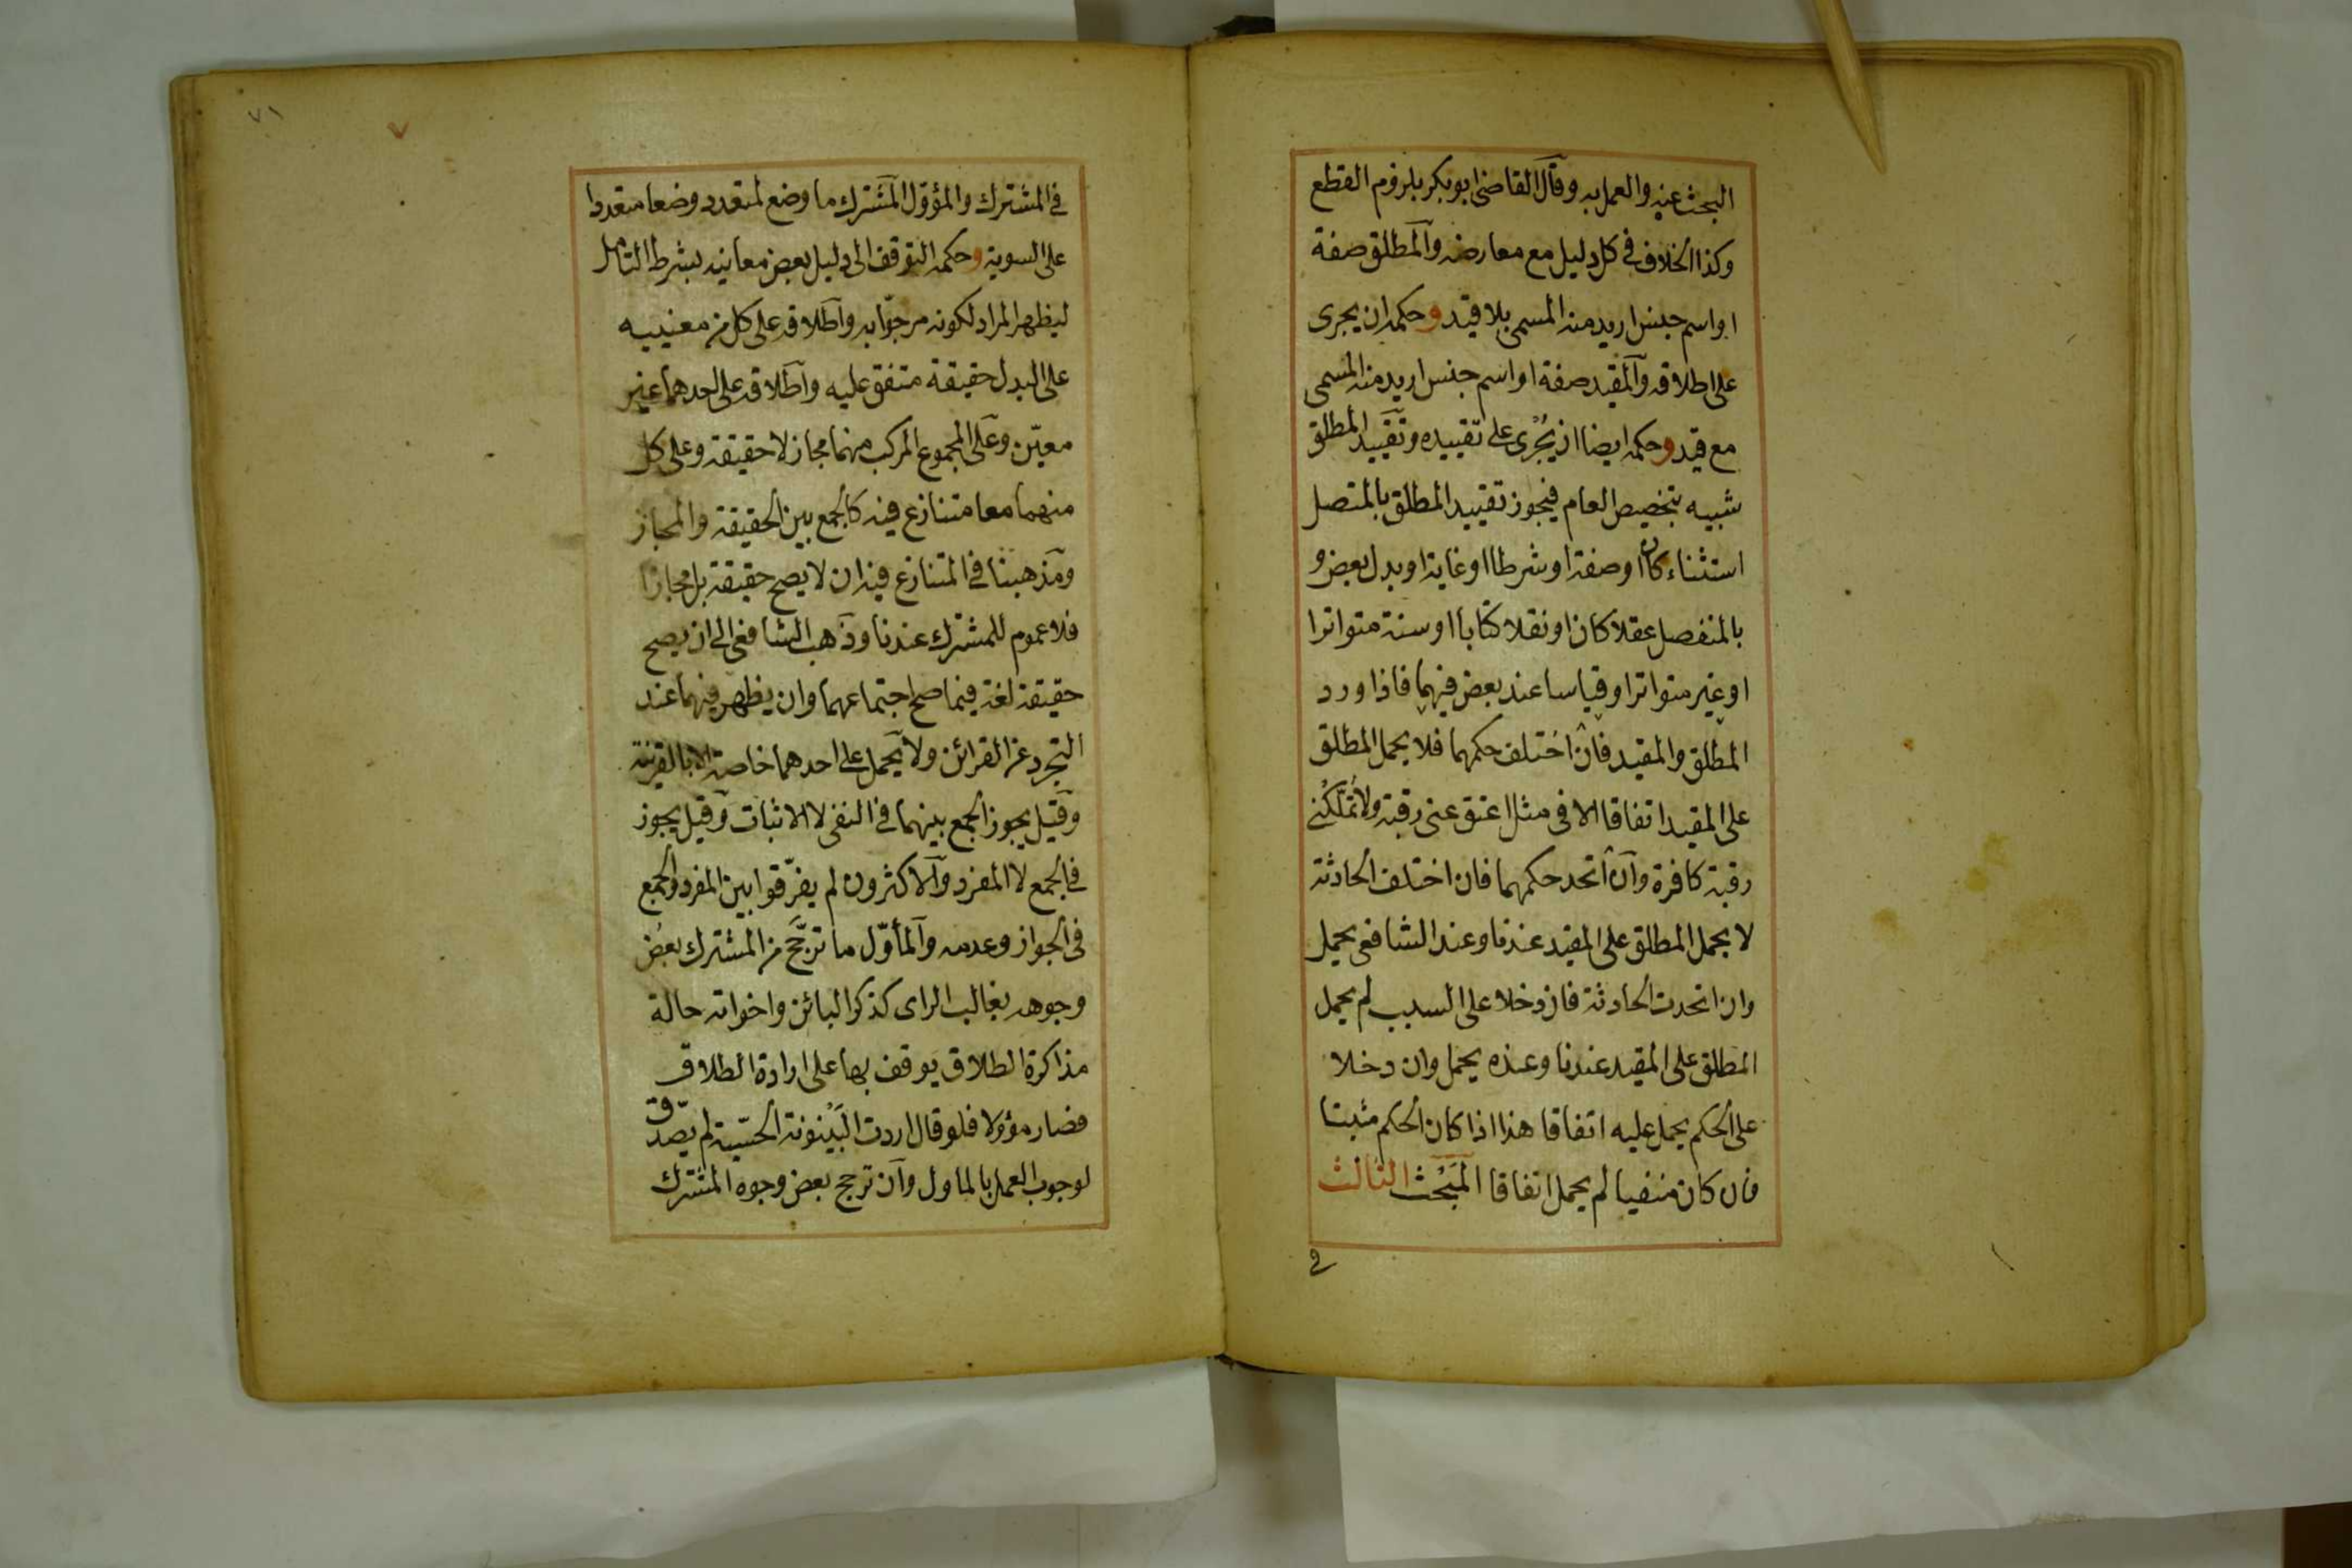 البحث عنه والعمل به وقال القاضى ابو بكر بلزوم القطع
وكذا الخلاف فى كل دليل مع معارضه والمطلق صفة
او اسم جنس اريد منه المسمى بلا قيد وحكمه ان يجرى
على اطلاقه والمقيد صفة او اسم جنس اريد منه المسمى
مع قيد وحكمه ايضا ان يُجْرى على تقييده وتقييد المطلق
شبيه بتخصيص العام فيجوز تقييد المطلق بالمتصل
استثناء كان او صفة او شرطا او غاية او بدل بعض و
بالمنفصل عقلا كان او نقلا كتابا او سنة متواترا
او غير متواتر او قياسا عند بعض فيهما فاذا ورد
المطلق والمقيد فان اختلف حكمهما فلا يحمل المطلق
على المقيد اتفاقا الا فى مثل اعتق عنى رقبة ولا تملكنى
رقبة كافرة وان اتحد حكمهما فان اختلف الحادثة
لا يحمل المطلق على المقيد عندنا وعند الشافعى يحمل
وان اتحدت الحادثة فان دخلا على السبب لم يحمل
المطلق على المقيد عندنا وعنده يحمل وان دخلا
على الحكم يحمل عليه اتفاقا هذا اذا كان الحكم مثبتا
فان كان منفيا لم يحمل اتفاقا المَبْحث الثالث
فى
٧١
فى المشترك والمؤوّل المشترك ما وضع لمتعدد وضعا متعددا
على السوية وحكمه التوقف الى دليل بعض معانيه بشرط التأمل
ليظهر المراد لكونه مرجوّا به واطلاقه على كل من معنييه
على البدل حقيقة متفق عليه واطلاقه على احدهما غير
معيّن وعلى المجموع المركب منهما مجاز لا حقيقة وعلى كل
منهما معا متنازع فيه كالجمع بين الحقيقة والمجاز
ومذهبنا فى المتنازع فيه ان لا يصح حقيقة بل مجازا
فلا عموم للمشترك عندنا وذهب الشافعى الى ان يصح
حقيقة لغة فيما صح اجتماعهما وان يظهر فيهما عند
التجرد عن القرائن ولا يحمل على احدهما خاصة الا بالقرينة
وقيل يجوز الجمع بينهما فى النفى لا الاثبات وقيل يجوز
فى الجمع لا المفرد والاكثرون لم يفرّقوا بين المفرد والجمع
فى الجواز وعدمه والمأوّل ما ترجّح من المشترك بعض
وجوهه بغالب الراى كذكر البائن واخواته حالة
مذاكرة الطلاق يوقف بها على ارادة الطلاق
فصار مؤولا فلو قال اردت البَيْنونة الحسّية لم يصدّق
لوجوب العمل بالماول وان ترجح بعض وجوه المشترك